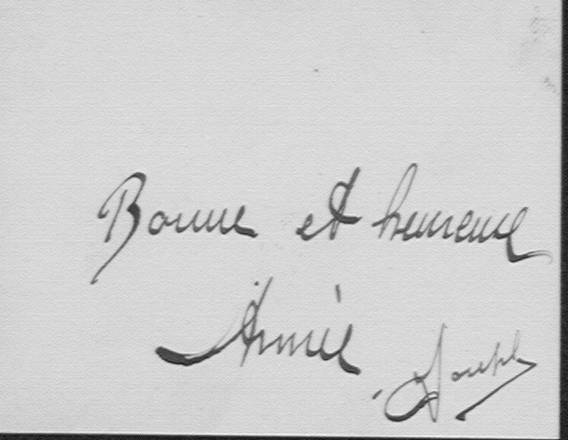 Bonne et heureuse
Année
Joseph